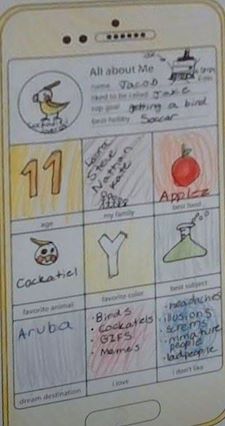 All about Me
name Jacob
liked to be called Jake
top goal getting a bird
best hobby Soccar
11
age
Lorra
Steve
Nathan
Kate
my family
Applez
best food
Cockatiel
favorite animal
Y
favorite color
best subject
Aruba
dream destination
• Birds
• Cockatiels
• GIFS
• Memes
i love
• headaches
• illusions
• screms
• mmature people
• badpeople
i don't like